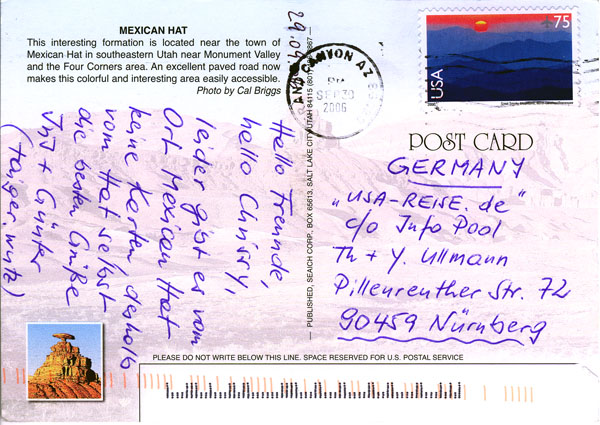 MEXICAN HAT
This interesting formation is located near the town of
Mexican Hat in southeastern Utah near Monument Valley
and the Four Corners area. An excellent paved road now
makes this colorful and interesting area easily accessible.
Photo by Cal Briggs
Hello Freunde,
hello Chrissy,
leider gibt es vom
Ort Mexican Hat
keine Karten deshalb
vom Hat selbst
die besten Grüße
+ Günter
PUBLISHED, SEAICH CORP., BOX 65613, SALT LAKE CITY, UTAH 84115
CANYON AZ
SEP 30
2006
75
USA
POST CARD
GERMANY
„USA-REISE.de“
c/o Info Pool
Th + Y. Ullmann
Pillenreuther Str. 72
90459 Nürnberg
PLEASE DO NOT WRITE BELOW THIS LINE. SPACE RESERVED FOR U.S. POSTAL SERVICE